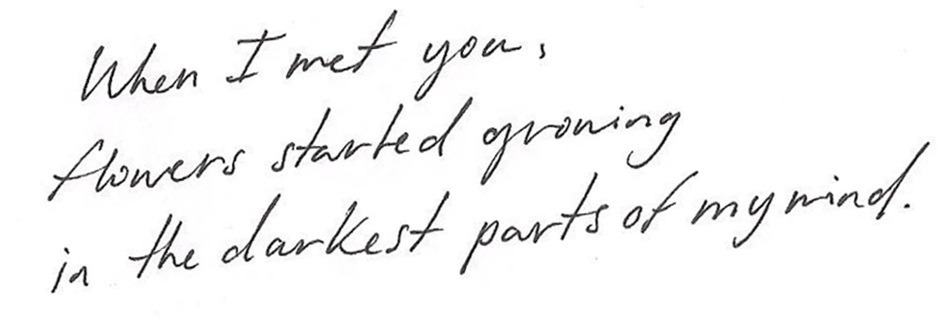 When I met you,
flowers started growing
in the darkest parts of my mind.